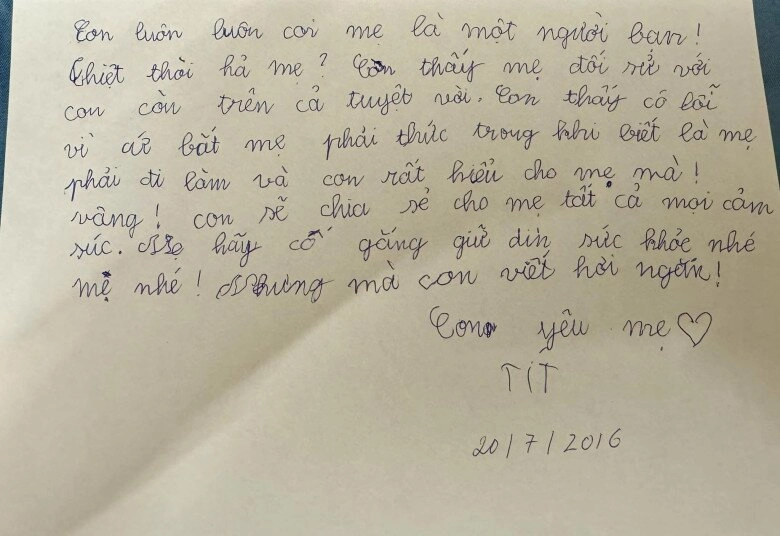 Con luôn luôn coi mẹ là một người bạn!
Thiệt thòi hả mẹ? Còn thấy mẹ đối sử với
con còn trên cả tuyệt vời. Con thấy có lỗi
vì cứ bắt mẹ phải thức trong khi biết là mẹ
phải đi làm và con rất hiểu cho mẹ mà!
vâng! con sẽ chia sẻ cho mẹ tất cả mọi cảm
súc. Mẹ hãy cố gắng giữ dìn sức khỏe nhé
mẹ nhé! Nhưng mà con viết hơi ngắn!
Con yêu mẹ ♡
TÍT
20/7/2016